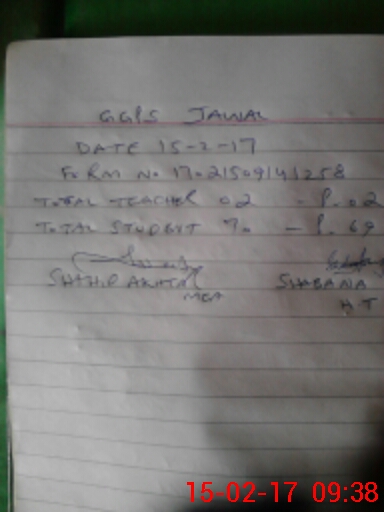 GGPS JAWAL
DATE 15-2-17
FORM No 17021509141258
TOTAL TEACHER 02 - P. 02
TOTAL STUDENT 70 - P. 69
SHAHID AKHTAR SHABANA
MEA H T
15-02-17 09:38